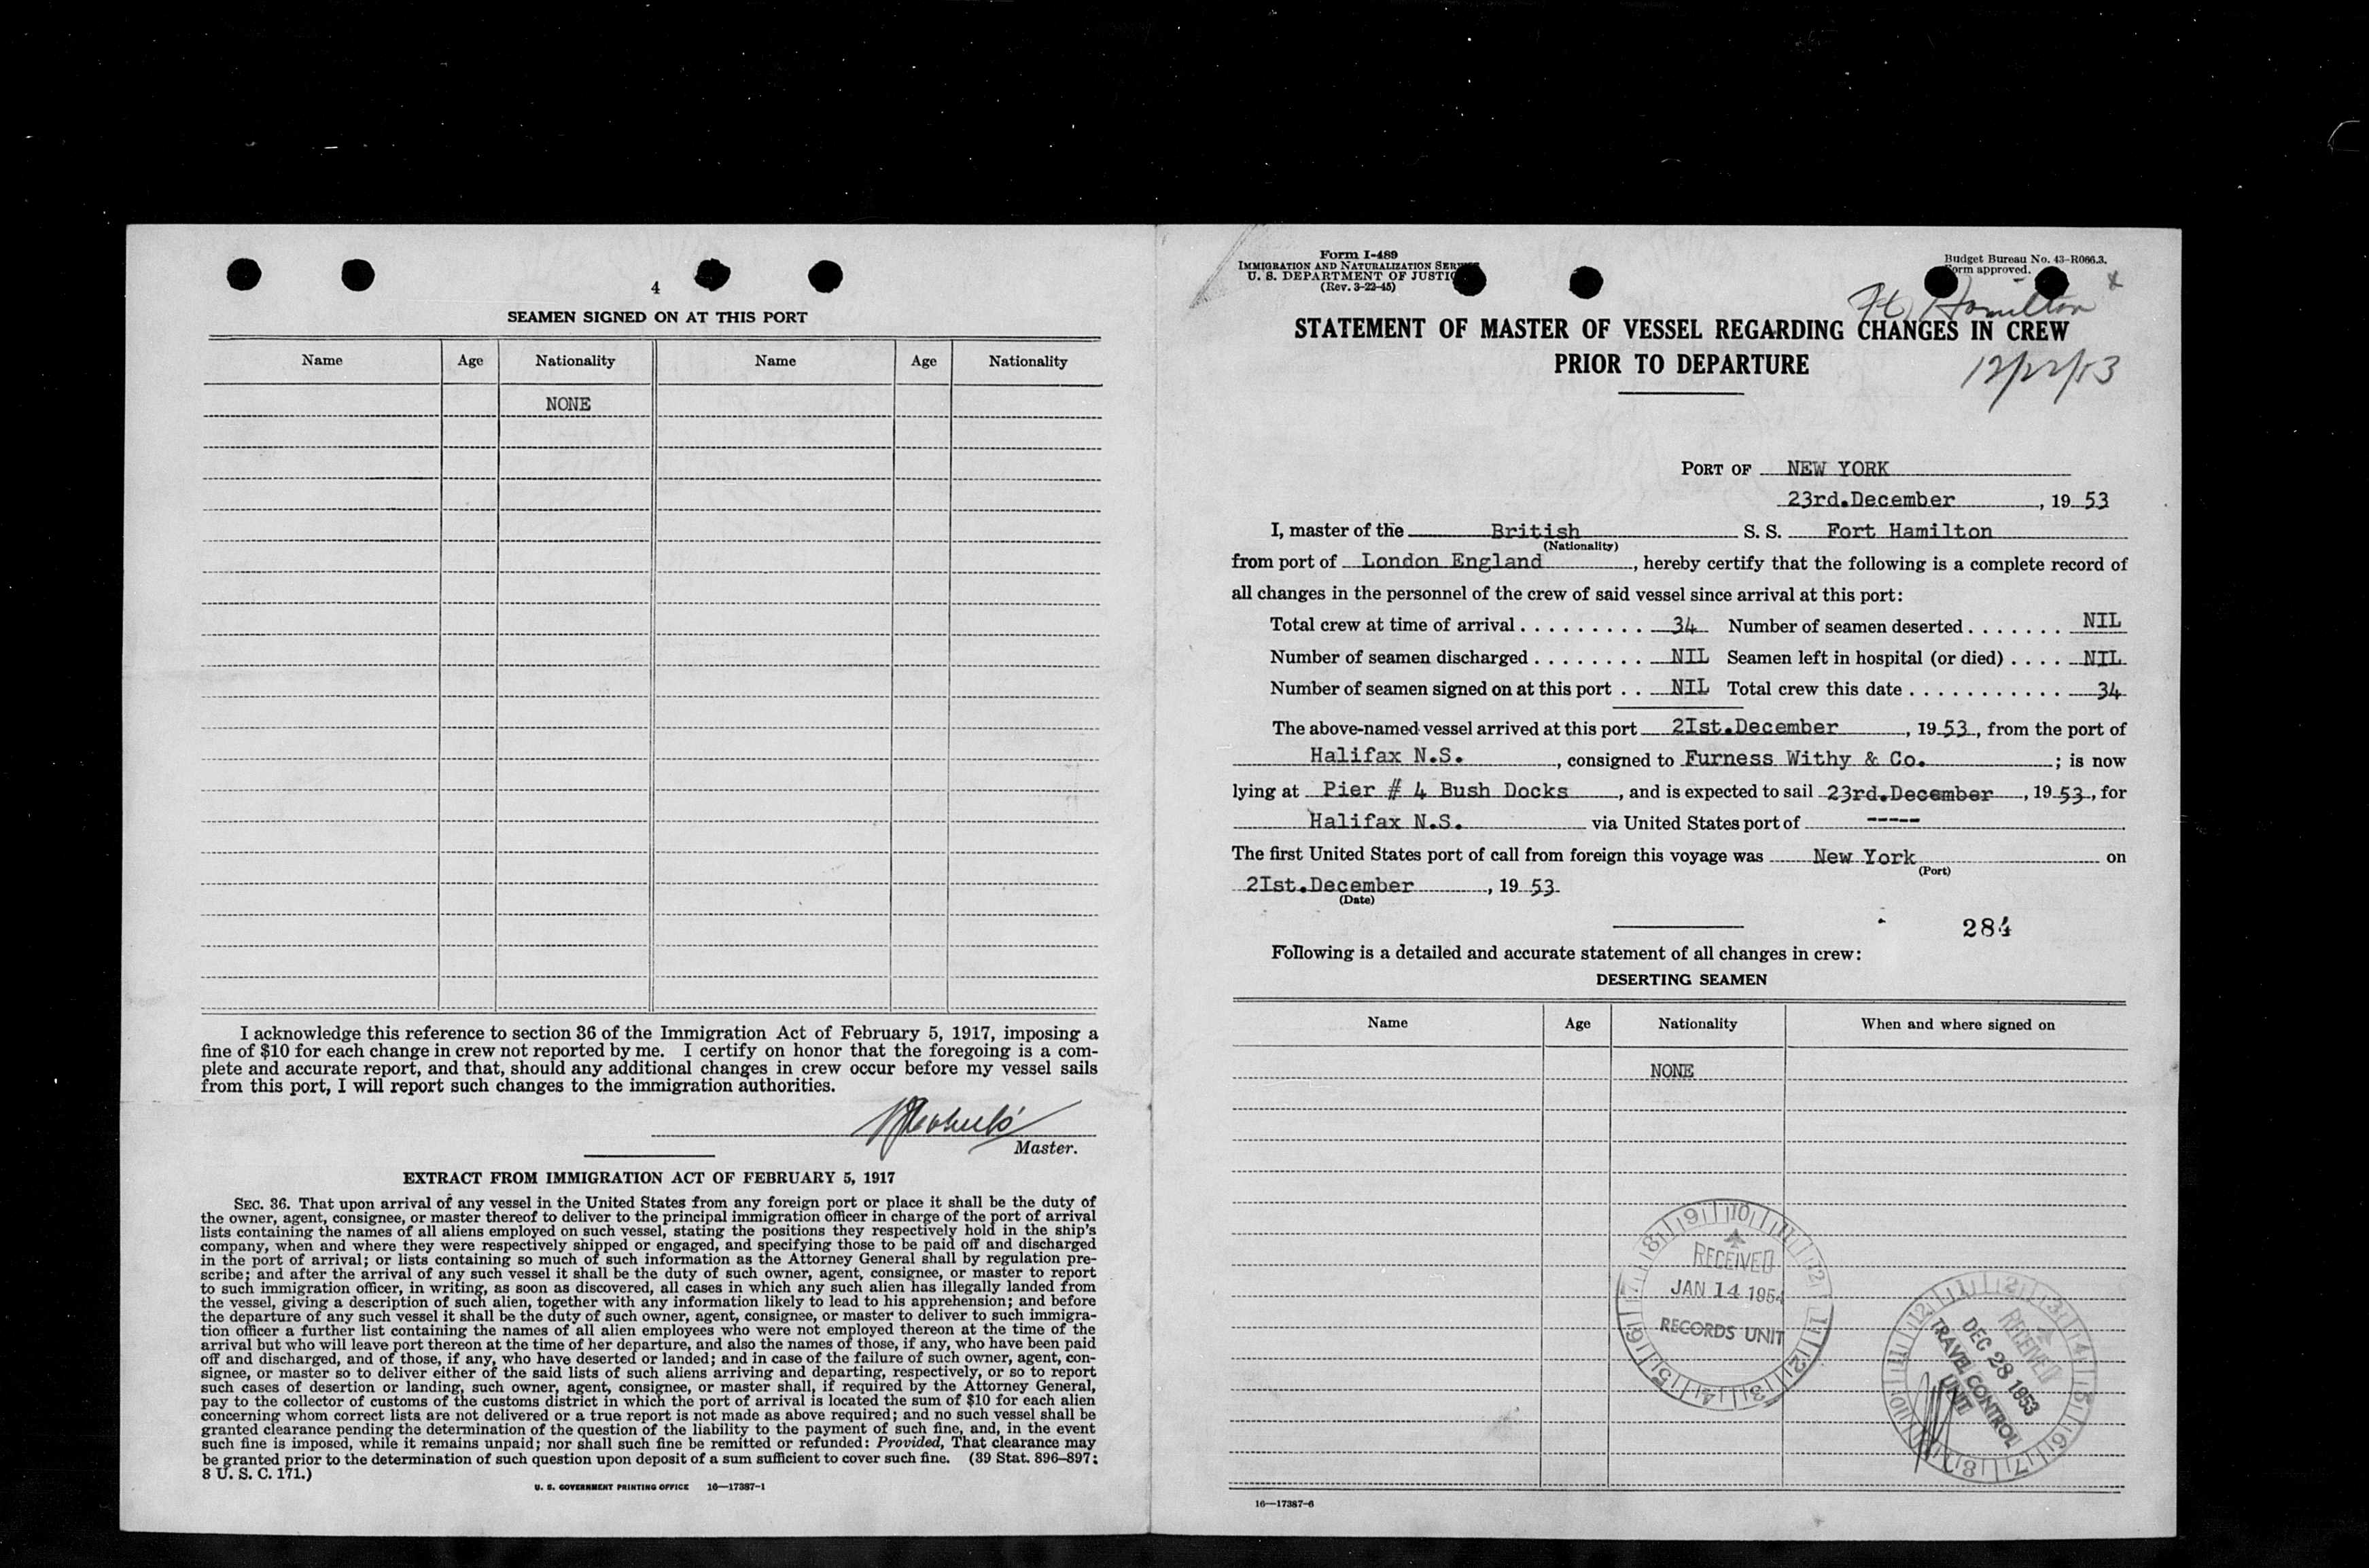 4
SEAMEN SIGNED ON AT THIS PORT
Name Age Nationality Name Age Nationality
NONE
I acknowledge this reference to section 36 of the Immigration Act of February 5, 1917, imposing a
fine of $10 for each change in crew not reported by me. I certify on honor that the foregoing is a com-
plete and accurate report, and that, should any additional changes in crew occur before my vessel sails
from this port, I will report such changes to the immigration authorities.
Master.
EXTRACT FROM IMMIGRATION ACT OF FEBRUARY 5, 1917
SEC. 36. That upon arrival of any vessel in the United States from any foreign port or place it shall be the duty of
the owner, agent, consignee, or master thereof to deliver to the principal immigration officer in charge of the port of arrival
lists containing the names of all aliens employed on such vessel, stating the positions they respectively hold in the ship's
company, when and where they were respectively shipped or engaged, and specifying those to be paid off and discharged
in the port of arrival; or lists containing so much of such information as the Attorney General shall by regulation pre-
scribe; and after the arrival of any such vessel it shall be the duty of such owner, agent, consignee, or master to report
to such immigration officer, in writing, as soon as discovered, all cases in which any such alien has illegally landed from
the vessel, giving a description of such alien, together with any information likely to lead to his apprehension; and before
the departure of any such vessel it shall be the duty of such owner, agent, consignee, or master to deliver to such immigra-
tion officer a further list containing the names of all alien employees who were not employed thereon at the time of the
arrival but who will leave port thereon at the time of her departure, and also the names of those, if any, who have been paid
off and discharged, and of those, if any, who have deserted or landed; and in case of the failure of such owner, agent, con-
signee, or master so to deliver either of the said lists of such aliens arriving and departing, respectively, or so to report
such cases of desertion or landing, such owner, agent, consignee, or master shall, if required by the Attorney General,
pay to the collector of customs of the customs district in which the port of arrival is located the sum of $10 for each alien
concerning whom correct lists are not delivered or a true report is not made as above required; and no such vessel shall be
granted clearance pending the determination of the question of the liability to the payment of such fine, and, in the event
such fine is imposed, while it remains unpaid; nor shall such fine be remitted or refunded: Provided, That clearance may
be granted prior to the determination of such question upon deposit of a sum sufficient to cover such fine. (39 Stat. 896-897;
8 U. S. C. 171.)
U. S. GOVERNMENT PRINTING OFFICE 16—17387-1
Form I-489
IMMIGRATION AND NATURALIZATION
U. S. DEPARTMENT OF
(Rev. 3-22-45)
Budget Bureau No. 43-R066.3.
Form approved.
Ft Hamilton
STATEMENT OF MASTER OF VESSEL REGARDING CHANGES IN CREW
PRIOR TO DEPARTURE
12/22/53
PORT OF NEW YORK
23rd.December, 19 53
I, master of the British S. S. Fort Hamilton
(Nationality)
from port of London England, hereby certify that the following is a complete record of
all changes in the personnel of the crew of said vessel since arrival at this port:
Total crew at time of arrival . . . . . . . . . 34 Number of seamen deserted . . . . . . . NIL
Number of seamen discharged . . . . . . . . NIL Seamen left in hospital (or died) . . . . NIL
Number of seamen signed on at this port . . NIL Total crew this date . . . . . . . . . . . 34
The above-named vessel arrived at this port 2Ist.December, 19 53, from the port of
Halifax N.S., consigned to Furness Withy & Co.; is now
lying at Pier # 4 Bush Docks, and is expected to sail 23rd.December, 19 53, for
Halifax N.S. via United States port of -----
The first United States port of call from foreign this voyage was New York on
(Port)
2Ist.December, 19 53
(Date)
284
Following is a detailed and accurate statement of all changes in crew:
DESERTING SEAMEN
Name Age Nationality When and where signed on
NONE
RECEIVED
JAN 14 1954
RECORDS UNIT
RECEIVED
DEC 28 1953
TRAVEL CONTROL
UNIT
16—17387-6